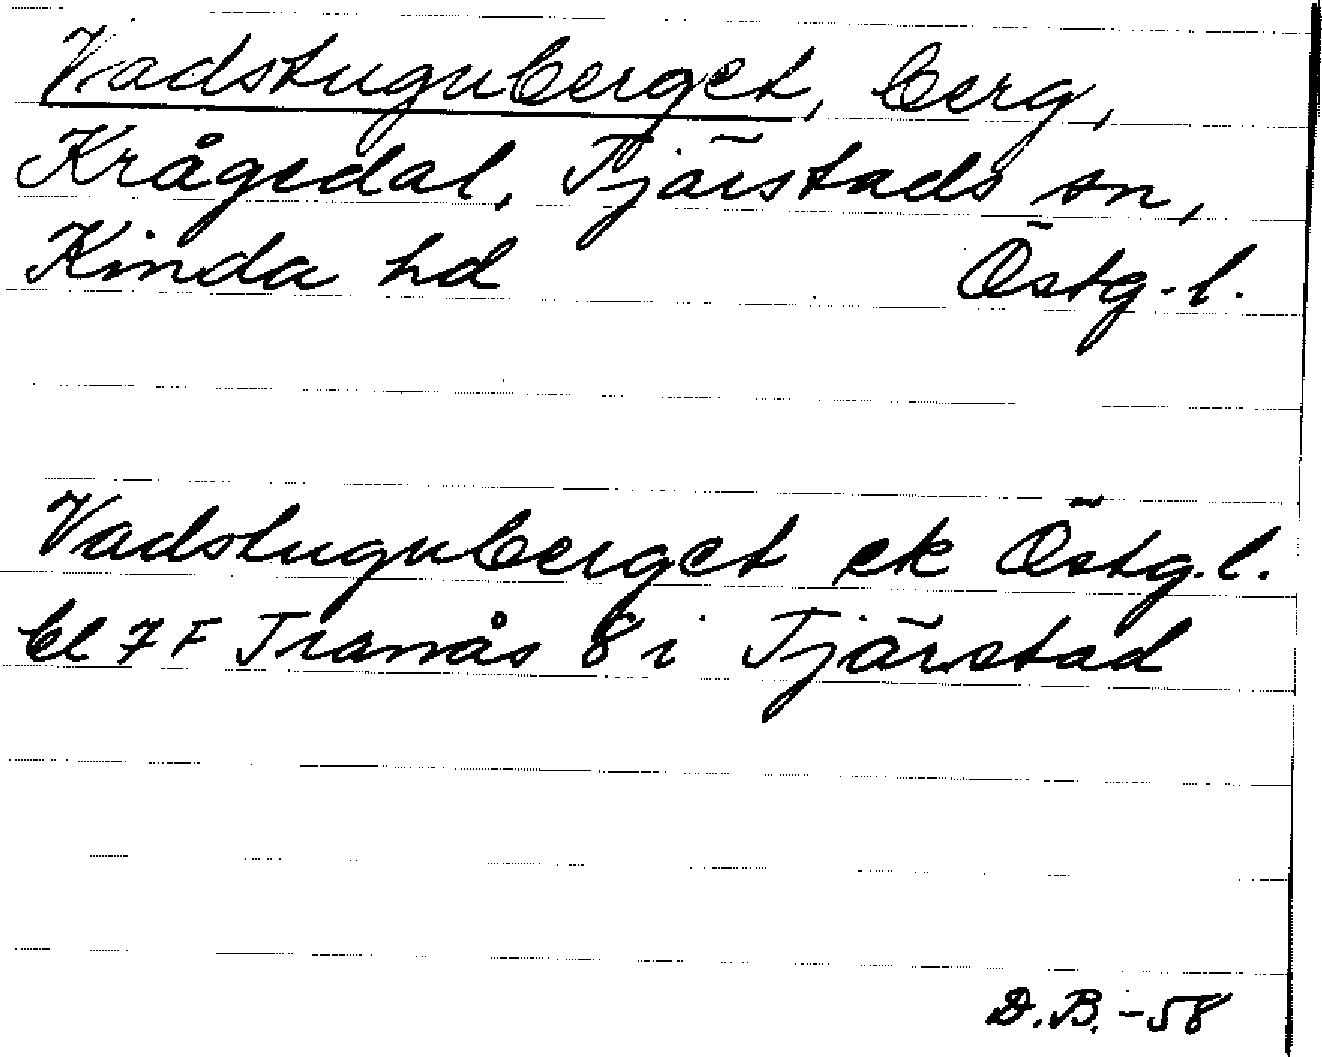 Vadstuguberget, berg,
Krågedal, Tjärstads sn,
Kinda hd Östg.l.
Vadstuguberget ek Östg.l.
bl 7 F Tranås 8 i Tjärstad
D.B. -58